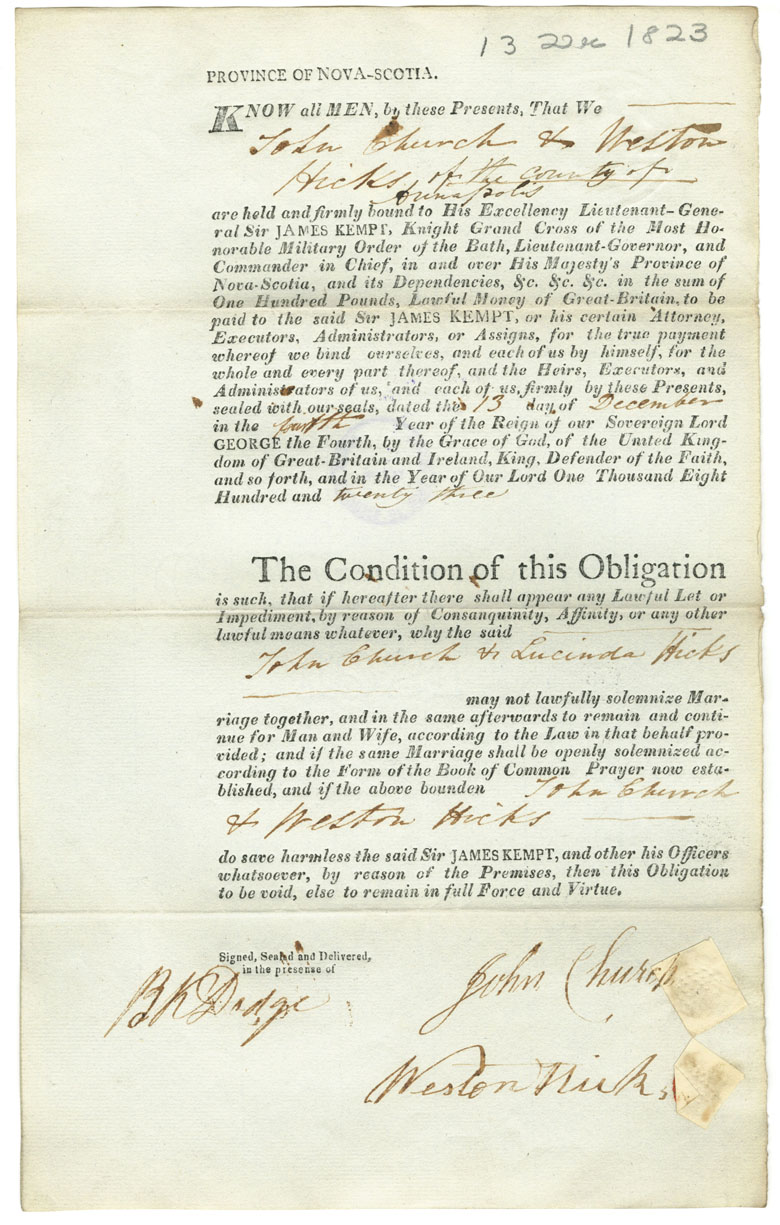 13 Dec 1823
PROVINCE OF NOVA-SCOTIA.
KNOW all MEN, by these Presents, That We
John Church & Weston
Hicks of the County of
Annapolis
are held and firmly bound to His Excellency Lieutenant-Gene-
ral Sir JAMES KEMPT, Knight Grand Cross of the Most Ho-
norable Military Order of the Bath, Lieutenant-Governor, and
Commander in Chief, in and over His Majesty's Province of
Nova-Scotia, and its Dependencies, &c. &c. &c. in the sum of
One Hundred Pounds, Lawful Money of Great-Britain, to be
paid to the said Sir JAMES KEMPT, or his certain Attorney,
Executors, Administrators, or Assigns, for the true payment
whereof we bind ourselves, and each of us by himself, for the
whole and every part thereof, and the Heirs, Executors, and
Administrators of us, and each of us, firmly by these Presents,
sealed with our seals, dated the 13 day of December
in the fourth Year of the Reign of our Sovereign Lord
GEORGE the Fourth, by the Grace of God, of the United King-
dom of Great-Britain and Ireland, King, Defender of the Faith,
and so forth, and in the Year of Our Lord One Thousand Eight
Hundred and twenty three
The Condition of this Obligation
is such, that if hereafter there shall appear any Lawful Let or
Impediment, by reason of Consanquinity, Affinity, or any other
lawful means whatever, why the said
John Church & Lucinda Hicks
may not lawfully solemnize Mar-
riage together, and in the same afterwards to remain and conti-
nue for Man and Wife, according to the Law in that behalf pro-
vided; and if the same Marriage shall be openly solemnized ac-
cording to the Form of the Book of Common Prayer now esta-
blished, and if the above bounden John Church
& Weston Hicks
do save harmless the said Sir JAMES KEMPT, and other his Officers
whatsoever, by reason of the Premises, then this Obligation
to be void, else to remain in full Force and Virtue.
Signed, Sealed and Delivered,
in the presense of
BK Dodge
John Church
Weston Hicks